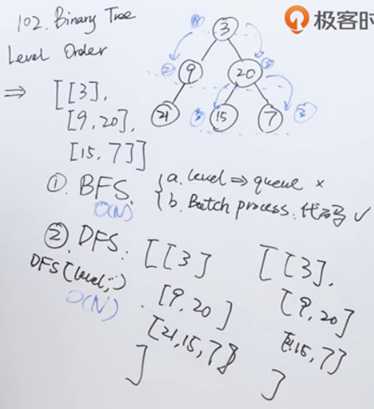 102. Binary Tree
Level Order
极客时
3
9 20
21 15 7
⇒ [[3],
[9,20],
[15,7]]
①. BFS. { a. level ⇒ queue ×
O(N) b. Batch process. 代码 ✓
②. DFS: [[3] [[3],
DFS(level,;) [9,20] [9,20]
O(N) [21,15,7] 15,7]
] ]